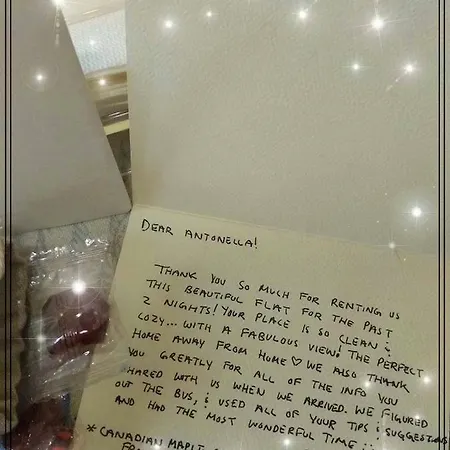 DEAR ANTONELLA!
THANK YOU SO MUCH FOR RENTING US
THIS BEAUTIFUL FLAT FOR THE PAST
2 NIGHTS! YOUR PLACE IS SO CLEAN &
COZY... WITH A FABULOUS VIEW! THE PERFECT
HOME AWAY FROM HOME ♡ WE ALSO THANK
YOU GREATLY FOR ALL OF THE INFO YOU
SHARED WITH US WHEN WE ARRIVED. WE FIGURED
OUT THE BUS, & USED ALL OF YOUR TIPS & SUGGESTIONS
AND HAD THE MOST WONDERFUL TIME
* CANADIAN